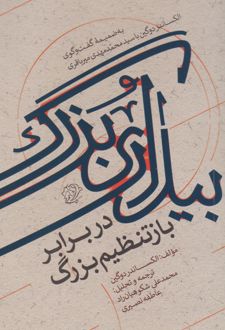 به ضمیمهٔ گفت‌وگوی
الکساندر دوگین با سید محمدمهدی میرباقری
بیداری بزرگ
در برابر
بازتنظیم بزرگ
مؤلف: الکساندر دوگین
ترجمه و تحلیل:
محمدعلی شکوهیان‌راد
عاطفه نصیری